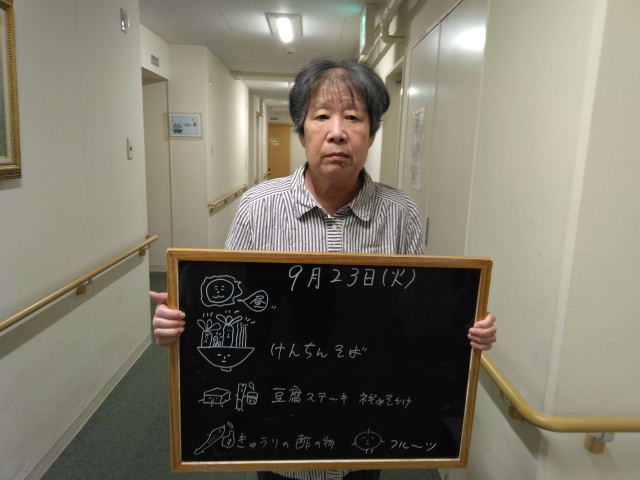 9月23日(火)
昼
けんちんそば
豆腐ステーキ
きゅうりの酢の物 フルーツ